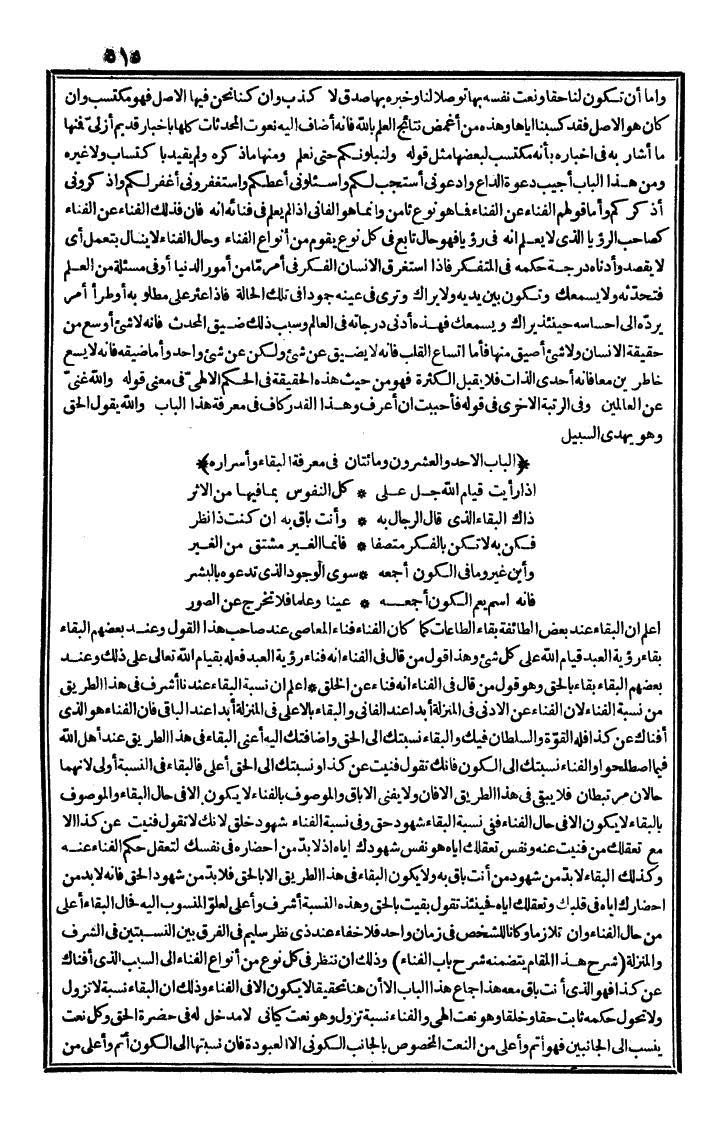 ٥١٥
واما أن تكون لنا حقا ونعت نفسه بها توصلا لنا وخبره بها صدق لا كذب وان كنا نحن فيها الاصل فهو مكتسب وان
كان هو الاصل فقد كسبنا اياها وهذه من أغمض نتائج العلم بالله فانه أضاف اليه نعوت المحدثات كلها باخبار قديم أزلى فنها
ما أشار به فى اخباره بأنه مكتسب لبعضها مثل قوله ولنبلونكم حتى نعلم ومنها ما ذكره ولم يقيد باكتساب ولا غيره
ومن هذا الباب أجيب دعوة الداع وادعونى أستجب لكم واسئلونى أعطكم واستغفرونى أغفر لكم واذكرونى
أذكركم وأما قولهم الفناء عن الفناء فما هو نوع ثامن وانما هو الفانى اذا لم يعلم فى فنائه انه فان فذلك الفناء عن الفناء
كصاحب الرؤيا الذى لا يعلم انه فى رؤيا فهو حال تابع فى كل نوع يقوم من أنواع الفناء وحال الفناء لا ينال بتعمل أى
لا يقصد وأدناه درجة حكمه فى المتفكر فاذا استغرق الانسان الفكر فى أمر ما من أمور الدنيا أو فى مسئلة من العلم
فتحدثه ولا يسمعك وتكون بين يديه ولا يراك وترى فى عينه جودا فى تلك الحالة فاذا عثر على مطلوبه أوطرأ أمر
يرده الى احساسه حينئذ يراك ويسمعك فهذه أدنى درجاته فى العالم وسبب ذلك ضيق المحدث فانه لا شئ أوسع من
حقيقة الانسان ولا شئ أضيق منها فأما اتساع القلب فانه لا يضيق عن شئ ولكن عن شئ واحد وأما ضيقه فانه لا يسع
خاطرين معا فانه أحدى الذات فلا يقبل الكثرة فهو من حيث هذه الحقيقة فى الحكم الالهى فى معنى قوله والله غنى
عن العالمين وفى الرتبة الاخرى فى قوله فأحببت ان أعرف وهذا القدر كاف فى معرفة هذا الباب والله يقول الحق
وهو يهدى السبيل
﴿الباب الاحد والعشرون ومائتان فى معرفة البقاء وأسراره﴾
اذا رأيت قيام الله جل على * كل النفوس بما فيها من الاثر
ذاك البقاء الذى قال الرجال به * وأنت باق به ان كنت ذا نظر
فكن به لا تكن بالفكر متصفا * فانما الغير مشتق من الغير
وأين غير وما فى الكون أجمعه * سوى الوجود الذى تدعوه بالبشر
فانه اسم يعم الكون أجمعه * عينا وعلما فلا تخرج عن الصور
اعلم ان البقاء عند بعض الطائفة بقاء الطاعات كما كان الفناء فناء المعاصى عند صاحب هذا القول وعند بعضهم البقاء
بقاء رؤية العبد قيام الله على كل شئ وهذا قول من قال فى الفناء انه فناء رؤية العبد فعله بقيام الله تعالى على ذلك وعند
بعضهم البقاء بقاء بالحق وهو قول من قال فى الفناء انه فناء عن الخلق * اعلم ان نسبة البقاء عندنا أشرف فى هذا الطريق
من نسبة الفناء لان الفناء عن الادنى فى المنزلة أبدا عند الفانى والبقاء بالاعلى فى المنزلة أبدا عند الباقى فان الفناء هو الذى
أفناك عن كذا فله القوة والسلطان فيك والبقاء نسبتك الى الحق واضافتك اليه أعنى البقاء فى هذا الطريق عند أهل الله
فيما اصطلحوا والفناء نسبتك الى الكون فانك تقول فنيت عن كذا ونسبتك الى الحق أعلى فالبقاء فى النسبة أولى لانهما
حالان مرتبطان فلا يبقى فى هذا الطريق الافان ولا يفنى الاباق والموصوف بالفناء لا يكون الافى حال البقاء والموصوف
بالبقاء لا يكون الافى حال الفناء ففى نسبة البقاء شهود حق وفى نسبة الفناء شهود خلق لانك لا تقول فنيت عن كذا الا
مع تعقلك من فنيت عنه ونفس تعقلك اياه هو نفس شهودك اياه اذ لا بد من احضاره فى نفسك لتعقل حكم الفناء عنه
وكذلك البقاء لا بد من شهود من أنت باق به ولا يكون البقاء فى هذا الطريق الا بالحق فلا بد من شهود الحق فانه لا بد من
احضارك اياه فى قلبك وتعقلك اياه فحينئذ تقول بقيت بالحق وهذه النسبة أشرف وأعلى لعلو المنسوب اليه فحال البقاء أعلى
من حال الفناء وان تلازما وكانا للشخص فى زمان واحد فلا خفاء عند ذى نظر سليم فى الفرق بين النسبتين فى الشرف
والمنزلة (شرح هذا المقام يتضمنه شرح باب الفناء) وذلك ان ننظر فى كل نوع من أنواع الفناء الى السبب الذى أفناك
عن كذا فهو الذى أنت باق معه هذا جماع هذا الباب الا أن هنا تحقيقا لا يكون الافى الفناء وذلك ان البقاء نسبة لا تزول
ولا تحول حكمه ثابت حقا وخلقا وهو نعت الهى والفناء نسبة تزول وهو نعت كيانى لا مدخل له فى حضرة الحق وكل نعت
ينسب الى الجانبين فهو أتم وأعلى من النعت المخصوص بالجانب الكونى الا العبودة فان نسبتها الى الكون أتم وأعلى من